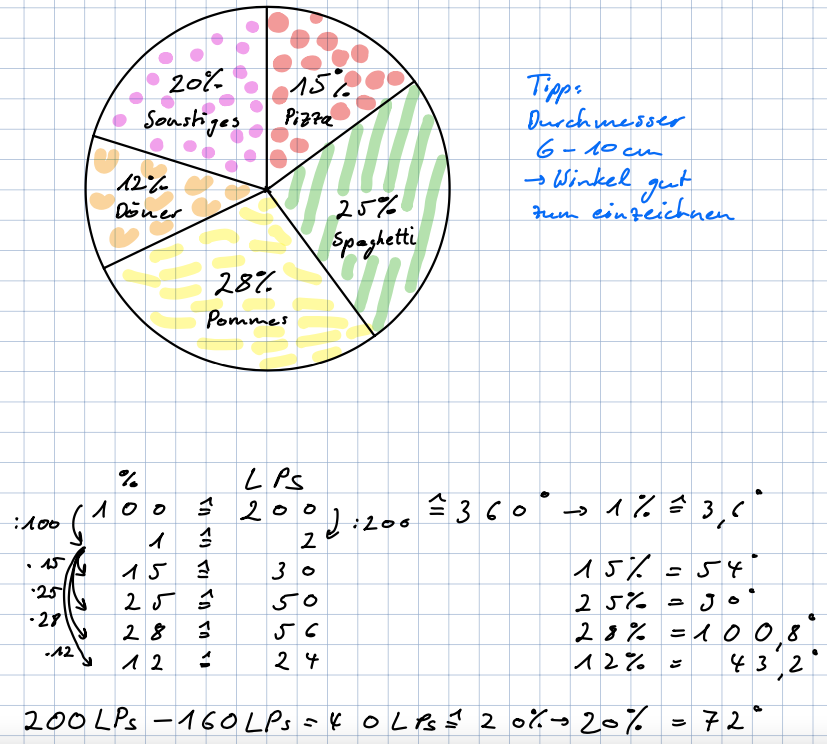 20%
Sonstiges
15%
Pizza
12%
Döner
25%
Spaghetti
28%
Pommes
Tipp:
Durchmesser
6 - 10 cm
→ Winkel gut
zum einzeichnen
% LPs
:100 100 ≙ 200 :200 ≙ 360° → 1% ≙ 3,6°
1 ≙ 2
·15 15 ≙ 30 15% = 54°
·25 25 ≙ 50 25% = 90°
·28 28 ≙ 56 28% = 100,8°
·12 12 ≙ 24 12% = 43,2°
200 LPs - 160 LPs = 40 LPs ≙ 20% → 20% = 72°